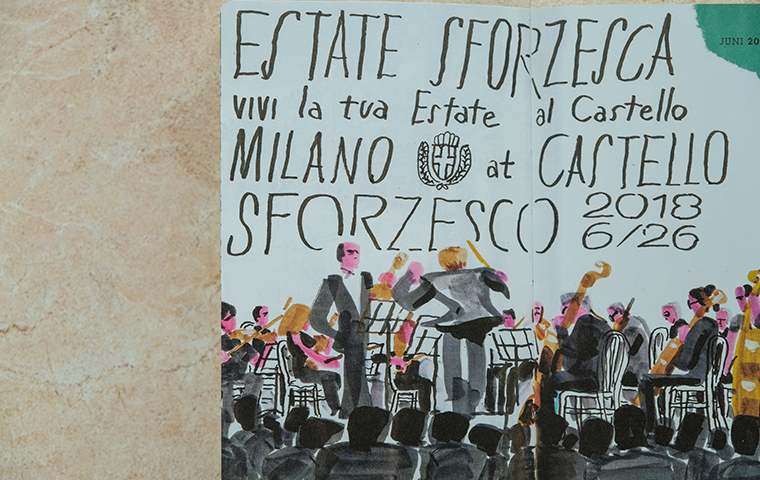 ESTATE SFORZESCA
JUNI 20
vivi la tua Estate al Castello
MILANO at CASTELLO
SFORZESCO 2018
6/26